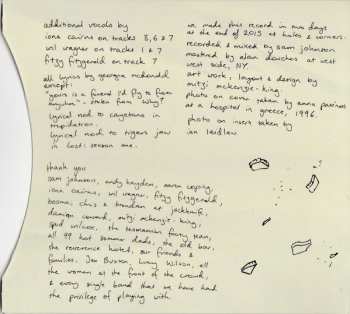 additional vocals by
iona cairns on tracks 3, 6 & 7
wil wagner on tracks 1 & 7
fitzy fitzgerald on track 7
all lyrics by georgia mcdonald
except:
"yours is a funeral i'd fly to from
anywhere" - stolen from 'why?'
lyrical nod to cayetana in
trepidation.
lyrical nod to tigers jaw
in lost: season one.
we made this record in nine days
at the end of 2015 at holes & corners.
recorded & mixed by sam johnson
mastered by alan douches at west
west side, NY.
art work, layout & design by
mitzi mckenzie-king.
photo on cover taken by anna
at a hospital in greece, 1996.
photo on insert taken by
ian laidlaw
thank you
sam johnson, andy hayden, aaron
iona cairns, wil wagner, fitzy fitzgerald,
chris & brendan at jackknife,
mitzi mckenzie-king,
the tasmanian party team,
all 99 hot summer dads, the old bar,
the reverence hotel, our friends &
families, Jen Buxton, Lucy Wilson, all
the women at the front of the crowd,
& every single band that we have had
the privilege of playing with.